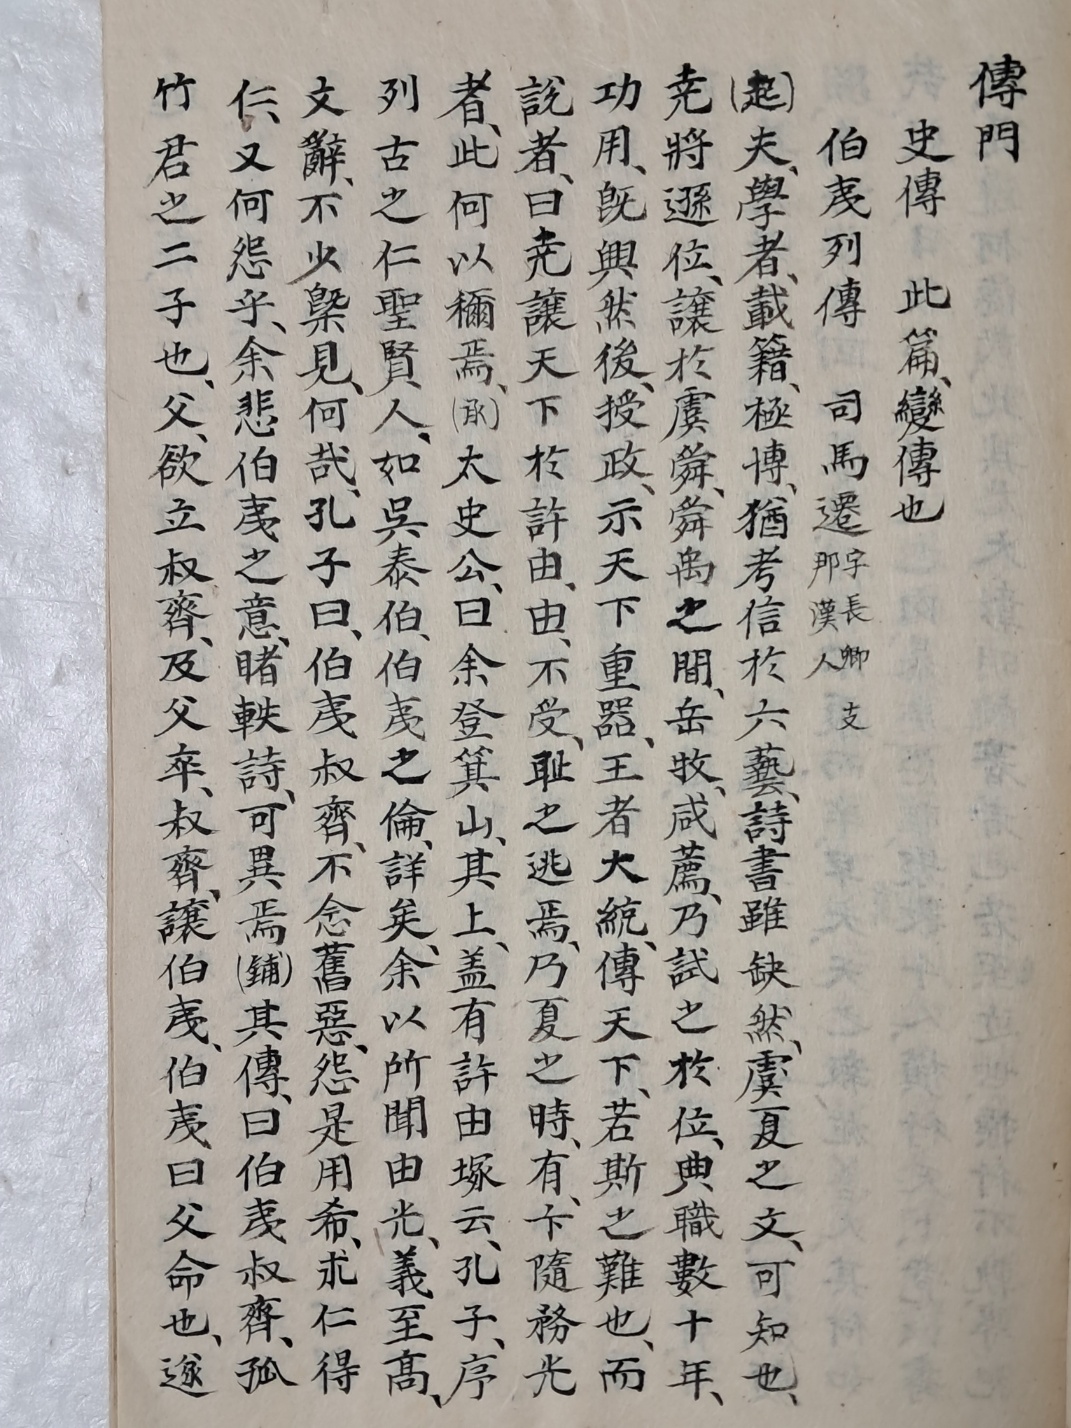 傳門
史傳　此篇、變傳也
伯夷列傳　司馬遷 字長卿 支那漢人
(起)夫、學者、載籍、極博、猶考信於六藝、詩書雖缺然、虞夏之文、可知也、
尭將遜位、譲於虞舜、舜禹之間、岳牧、咸薦、乃試之於位、典職數十年、
功用、既興然後、授政、示天下重器、王者大統、傳天下、若斯之難也、而
説者、曰尭譲天下於許由、由、不受、耻之逃焉、乃夏之時、有、卞隨務光
者、此何以稱焉、(承)太史公、曰余登箕山、其上、盖有許由塚云、孔子、序
列古之仁聖賢人、如吳泰伯、伯夷之倫、詳矣、余以所聞由光、義至高、
文辭、不少槩見、何哉、孔子曰、伯夷叔齊、不念舊惡、怨是用希、求仁得
仁、又何怨乎、余悲伯夷之意、睹軼詩、可異焉(鋪)其傳、曰伯夷叔齊、孤
竹君之二子也、父、欲立叔齊、及父卒、叔齊、譲伯夷、伯夷曰父命也、遂